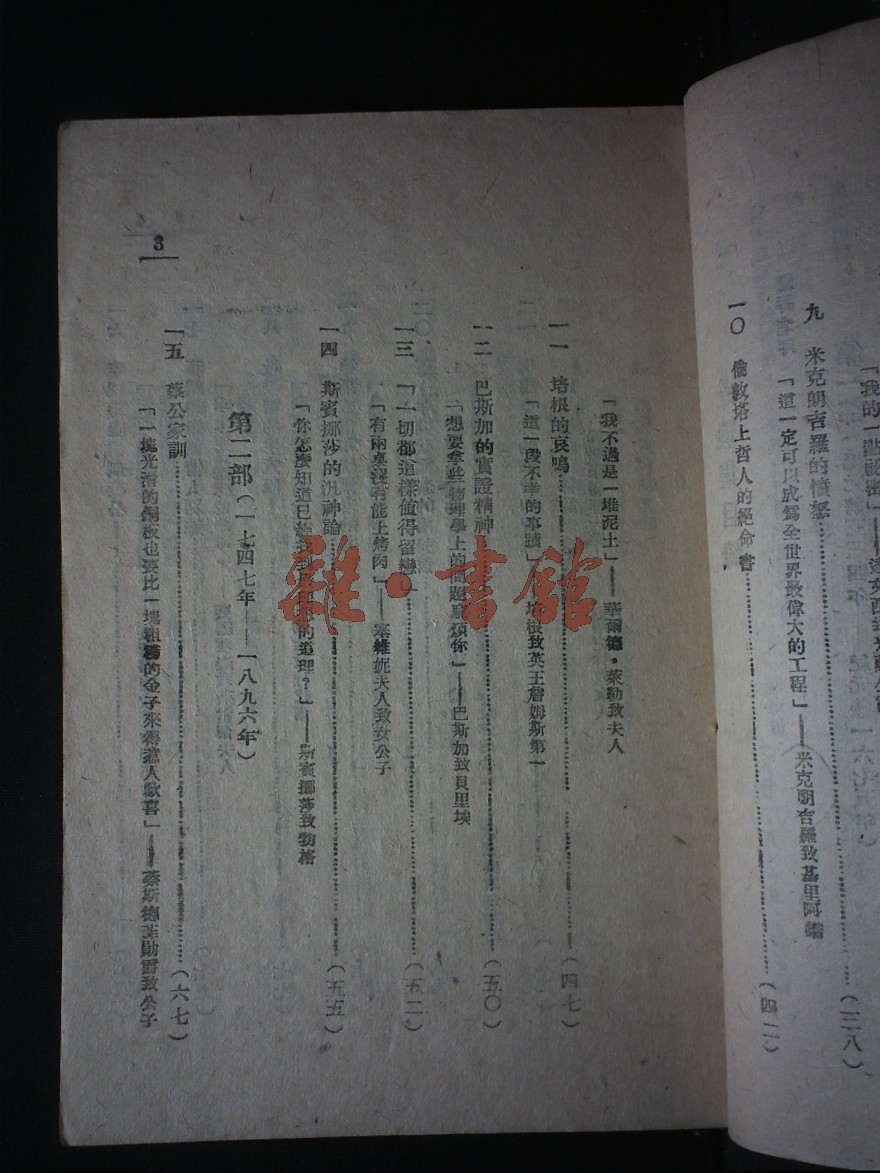 「我的一點祕密」
九 米克朗吉羅的憤怒……(三八)
「這一定可以成爲全世界最偉大的工程」——米克朗吉羅致基里阿
一〇 倫敦塔上哲人的絕命書……(四二)
「我不過是一堆泥土」——華爾德·萊勒致夫人
一一 培根的哀鳴……(四七)
「這一段不幸的事蹟」——培根致英王詹姆斯第一
一二 巴斯加的實證精神……(五〇)
「想要拿些物理學上的問題麻煩你」——巴斯加致貝里埃
一三 「一切都這樣值得留戀」……(五二)
「有兩桌沒有能上烤肉」——塞維妮夫人致女公子
一四 斯賓挪莎的汎神論……(五五)
「你怎麼知道已經找到最理想的道理?」——斯賓挪莎致勃格
第二部(一七四七年——一八九六年)
一五 蔡公家訓……(六七)
「一塊光滑的銅板也要比一塊粗糲的金子來得惹人歡喜」——蔡斯德菲勛爵致公子
3
雜·書館